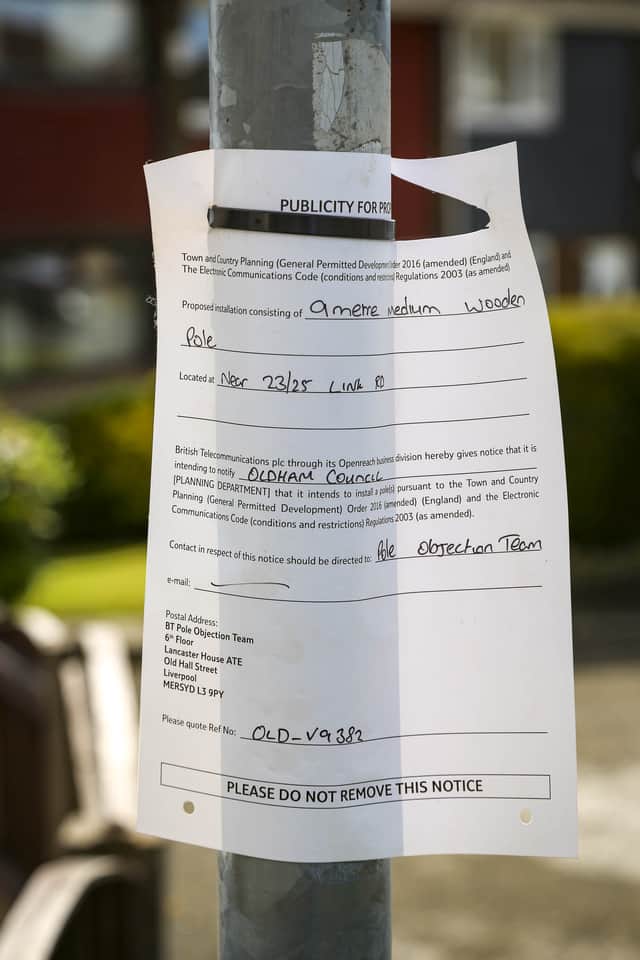 PUBLICITY FOR PRO
Town and Country Planning (General Permitted Development Order 2016 (amended) (England) and
The Electronic Communications Code (conditions and restrictions) Regulations 2003 (as amended)
Proposed installation consisting of 9 metre medium wooden
Pole
Located at Near 23/25 LINK RD
British Telecommunications plc through its Openreach business division hereby gives notice that it is
intending to notify OLDHAM COUNCIL
[PLANNING DEPARTMENT] that it intends to install a pole(s) pursuant to the Town and Country
Planning (General Permitted Development) Order 2016 (amended) (England) and the Electronic
Communications Code (conditions and restrictions) Regulations 2003 (as amended).
Contact in respect of this notice should be directed to: Pole Objection Team
e-mail:
Postal Address:
BT Pole Objection Team
6th Floor
Lancaster House ATE
Old Hall Street
Liverpool
MERSYD L3 9PY
Please quote Ref No: OLD-V9382
PLEASE DO NOT REMOVE THIS NOTICE